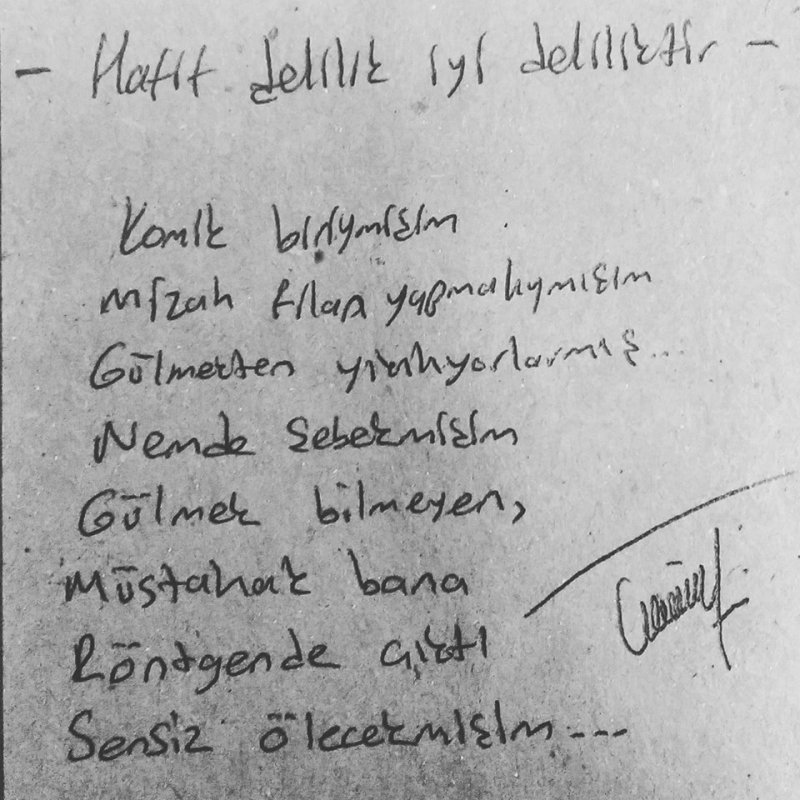 - Hafif delilik iyi deliliktir -
Komik biriymişim
mizah filan yapmalıymışım
Gülmekten yıkılıyorlarmış...
Nemde şebekmişim
Gülmek bilmeyen,
Müstahak bana
Röntgende çıktı
Sensiz ölecekmişim---